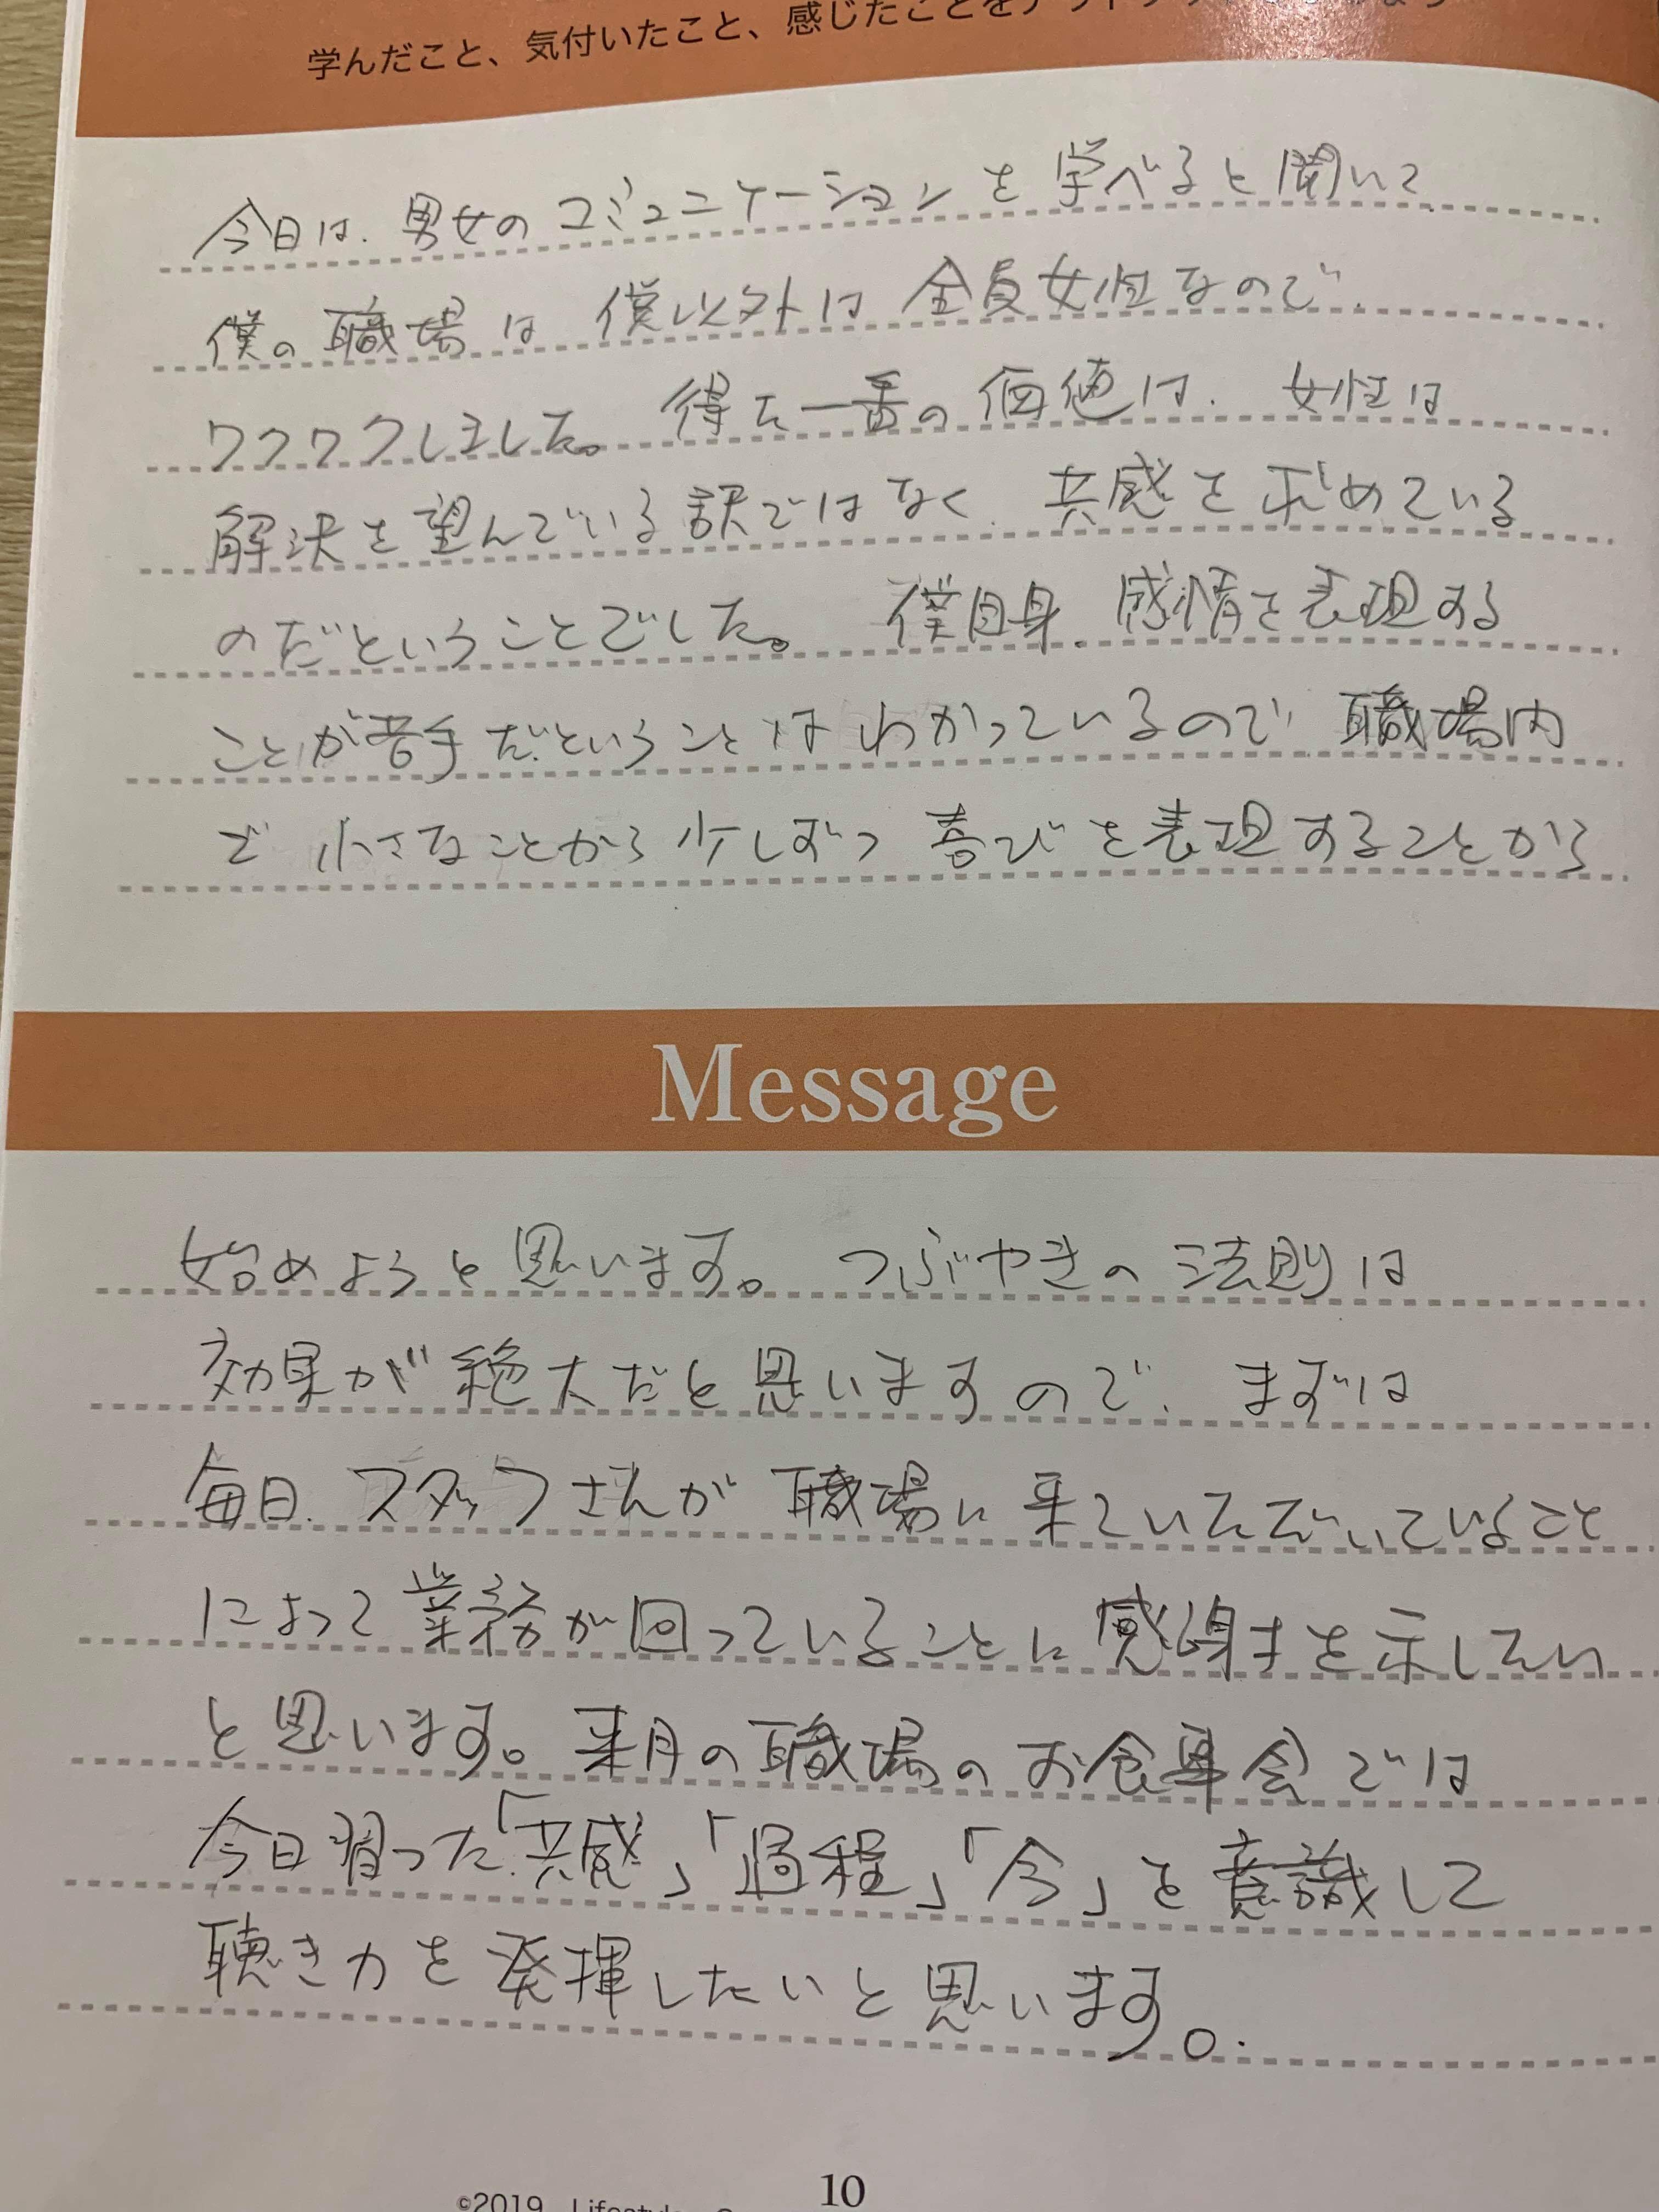 学んだこと、気付いたこと、感じたことをアウトプット
今日は、男女のコミュニケーションを学べると聞いて、
僕の職場は僕以外は全員女性なので、
ワクワクしました。得た一番の価値は、女性は
解決を望んでいる訳ではなく、共感を求めている
のだということでした。僕自身、感情を表現する
ことが苦手だということはわかっているので、職場内
で小さなことから少しずつ喜びを表現することから
Message
始めようと思います。つぶやきの法則は
効果が絶大だと思いますので、まずは
毎日、スタッフさんが職場に来ていただいていること
によって業務が回っていることに感謝を示したい
と思います。来月の職場のお食事会では
今日習った「共感」「過程」「今」を意識して
聴き力を発揮したいと思います。
10
©2019 Lifestyle